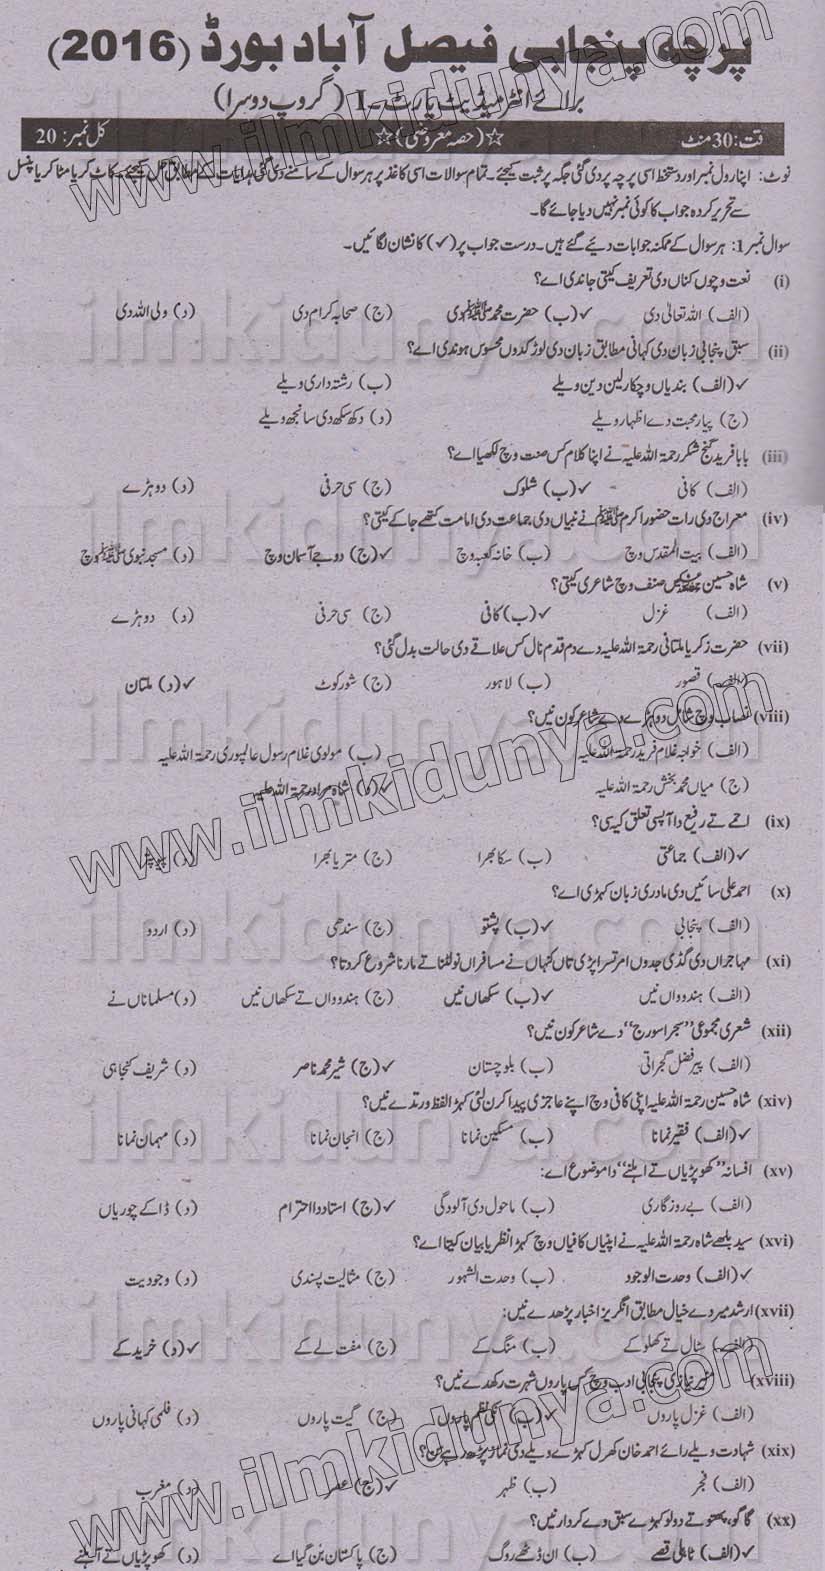 پرچہ پنجابی فیصل آباد بورڈ (2016)
برائے انٹرمیڈیٹ پارٹ-I (گروپ دوسرا)
وقت: 30 منٹ ☆(حصہ معروضی)☆ کل نمبر: 20
نوٹ: اپنا رول نمبر اور دستخط اسی پرچہ پر دی گئی جگہ پر ثبت کیجئے۔ تمام سوالات اسی کاغذ پر ہر سوال کے سامنے دی گئی ہدایات کے مطابق حل کیجئے۔ کاٹ کر یا مٹا کر یا پنسل
سے تحریر کردہ جواب کا کوئی نمبر نہیں دیا جائے گا۔
سوال نمبر 1: ہر سوال کے ممکنہ جوابات دیئے گئے ہیں۔ درست جواب پر (✓) کا نشان لگائیں۔
(i) نعت وچوں کناں دی تعریف کیتی جاندی اے؟
(الف) اللہ تعالیٰ دی ✓(ب) حضرت محمد ﷺ دی (ج) صحابہ کرام دی (د) ولی اللہ دی
(ii) سبق پنجابی زبان دی کہانی مطابق زبان دی لوڑ کدوں محسوس ہوندی اے؟
✓(الف) بندیاں وچکار لین دین ویلے (ب) رشتہ داری ویلے
(ج) پیار محبت دے اظہار ویلے (د) دکھ سکھ دی سانجھ ویلے
(iii) بابا فرید گنج شکر رحمۃ اللہ علیہ نے اپنا کلام کس صنت وچ لکھیا اے؟
(الف) کافی ✓(ب) شلوک (ج) سی حرفی (د) دوہڑے
(iv) معراج دی رات حضور اکرم ﷺ نے نبیاں دی جماعت دی امامت کتھے جا کے کیتی؟
(الف) بیت المقدس وچ (ب) خانہ کعبہ وچ ✓(ج) دوجے آسمان وچ (د) مسجد نبوی ﷺ وچ
(v) شاہ حسین کس صنف وچ شاعری کیتی؟
(الف) غزل ✓(ب) کافی (ج) سی حرفی (د) دوہڑے
(vii) حضرت زکریا ملتانی رحمۃ اللہ علیہ دے دم قدم نال کس علاقے دی حالت بدل گئی؟
(الف) قصور (ب) لاہور (ج) شورکوٹ ✓(د) ملتان
(viii) نصاب وچ شامل دوہڑے دے شاعر کون نیں؟
(الف) خواجہ غلام فرید رحمۃ اللہ علیہ (ب) مولوی غلام رسول عالمپوری رحمۃ اللہ علیہ
(ج) میاں محمد بخش رحمۃ اللہ علیہ ✓(د) شاہ مراد رحمۃ اللہ علیہ
(ix) اجے تے رفیع دا آپسی تعلق کیہ سی؟
✓(الف) جماعتی (ب) سکا بھرا (ج) متریا بھرا (د)
(x) احمد علی سائیں دی مادری زبان کہڑی اے؟
(الف) پنجابی ✓(ب) پشتو (ج) سندھی (د) اردو
(xi) مہاجراں دی گڈی جدوں امرتسر اپڑی تاں کنہاں نے مسافراں نو لٹنا تے مارنا شروع کر دتا؟
(الف) ہندوواں نیں ✓(ب) سکھاں نیں (ج) ہندوواں تے سکھاں نیں (د) مسلماناں نے
(xii) شعری مجموعی "سجرا سورج" دے شاعر کون نیں؟
(الف) پیر فضل گجراتی (ب) بلوچستان ✓(ج) شیر محمد ناصر (د) شریف کنجاہی
(xiv) شاہ حسین رحمۃ اللہ علیہ اپنی کافی وچ اپنے عاجزی پیدا کرن لئی کہڑا لفظ ورتدے نیں؟
✓(الف) فقیر نمانا (ب) مسکین نمانا (ج) انجان نمانا (د) مہمان نمانا
(xv) افسانہ "کھوپڑیاں تے اہلنے" دا موضوع اے:
(الف) بے روزگاری (ب) ماحول دی آلودگی ✓(ج) استاد دا احترام (د) ڈاکے چوریاں
(xvi) سید بلھے شاہ رحمۃ اللہ علیہ نے اپنیاں کافیاں وچ کہڑا نظریا بیان کیتا اے؟
✓(الف) وحدت الوجود (ب) وحدت الشہور (ج) مثالیت پسندی (د) وجودیت
(xvii) ارشد میر دے خیال مطابق انگریز اخبار پڑھدے نیں:
(الف) سٹال تے کھلو کے (ب) منگ کے (ج) مفت لے کے ✓(د) خرید کے
(xviii) منیر نیازی پنجابی ادب وچ کس پاروں شہرت رکھدے نیں؟
(الف) غزل پاروں ✓(ب) نظم پاروں (ج) گیت پاروں (د) فلمی کہانی پاروں
(xix) شہادت ویلے رائے احمد خان کھرل کہڑے ویلے دی نماز پڑھ رہے سن؟
(الف) فجر (ب) ظہر ✓(ج) عصر (د) مغرب
(xx) گاگو، پھتو تے دولو کہڑے سبق دے کردار نیں؟
✓(الف) ٹاہلی قصے (ب) ان ڈٹھے روگ (ج) پاکستان بن گیا اے (د) کھوپڑیاں تے آہلنے
www.ilmkidunya.com